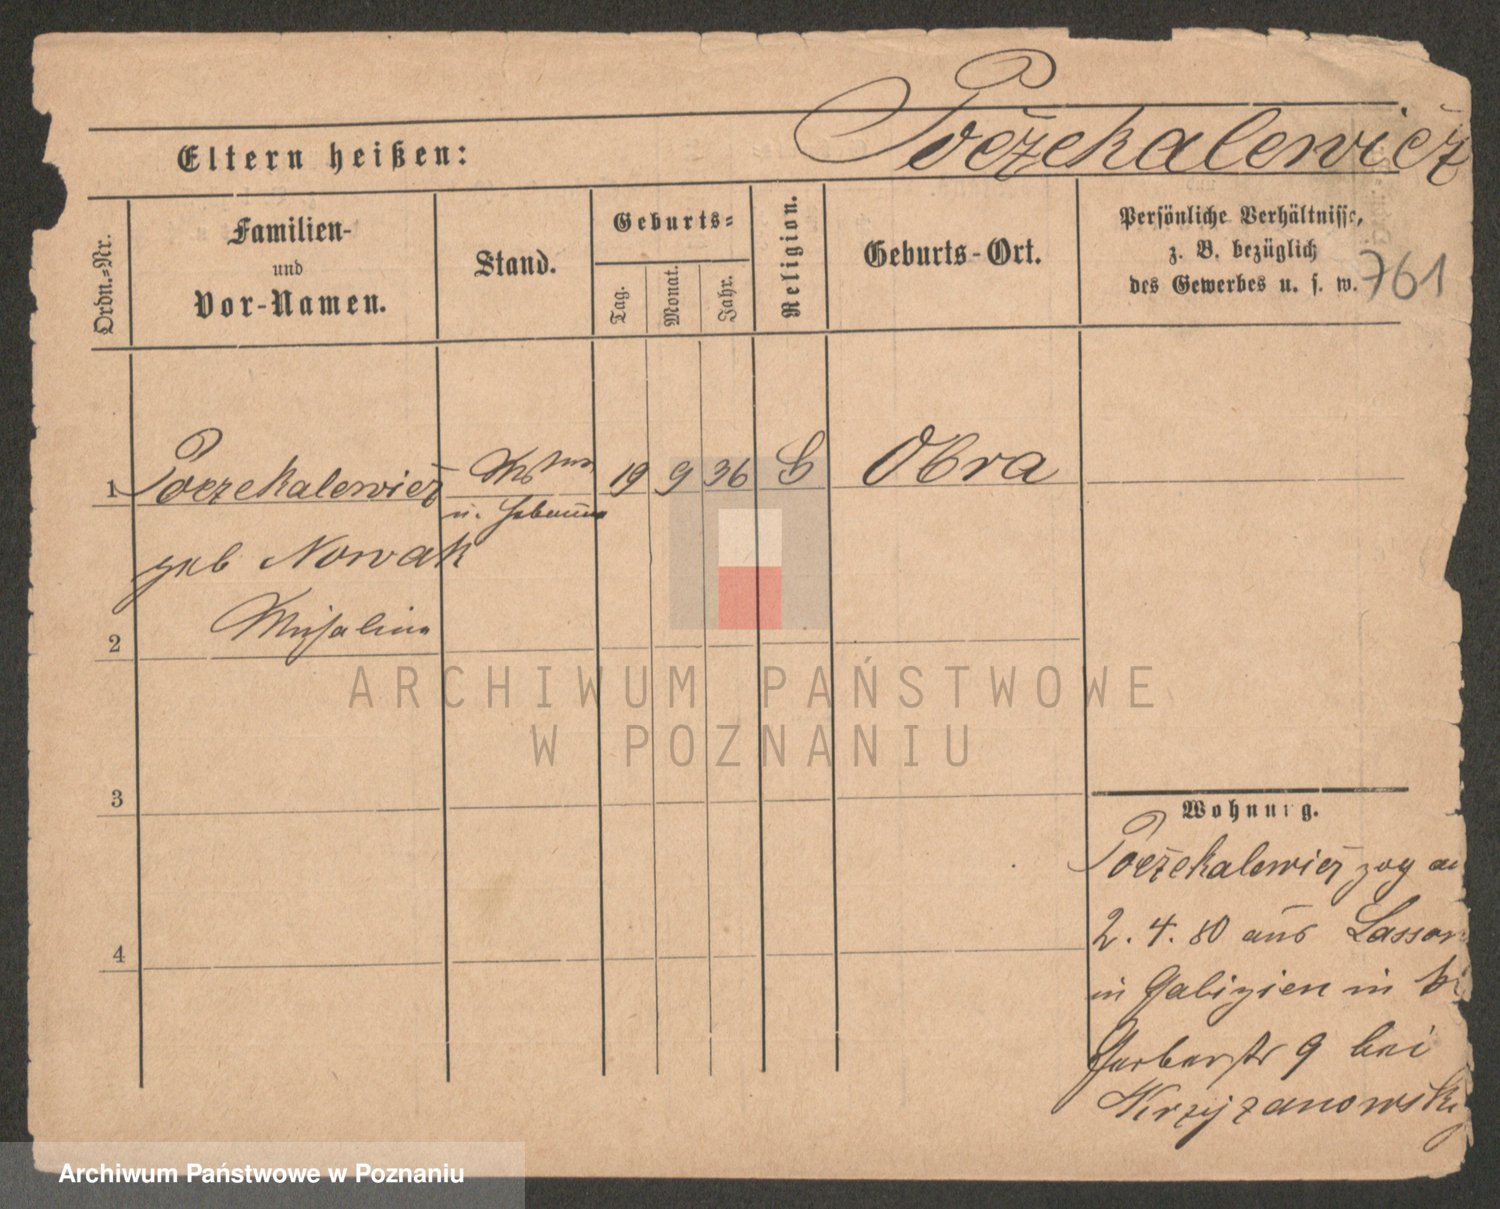 Poczekalewicz
Eltern heißen:
Ordn.-Nr.
Familien-
und
Vor-Namen.
Stand.
Geburts-
Tag.
Monat.
Jahr.
Religion.
Geburts-Ort.
Persönliche Verhältnisse,
z. B. bezüglich
des Gewerbes u. s. w.
761
1 Poczekalewicz 19 9 36 Obra
u. Hebamme
geb Nowak
2
3
4
Wohnung.
Poczekalewicz zog
2. 4. 80 aus
in Galizien in
Gerberstr 9 bei
Krzyzanowski
ARCHIWUM PAŃSTWOWE
W POZNANIU
Archiwum Państwowe w Poznaniu